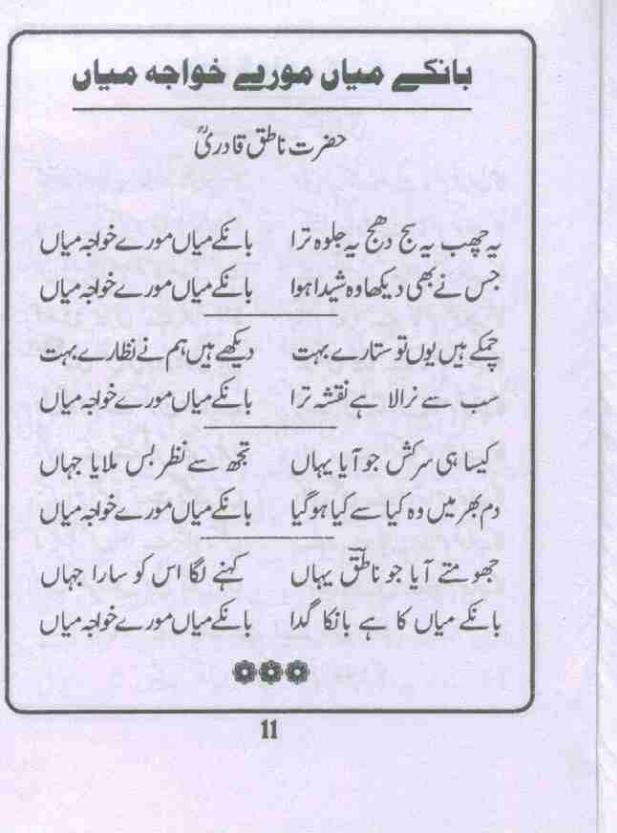 بانکے میاں مورے خواجہ میاں
حضرت ناطق قادریؒ
یہ چھب یہ سج دھج یہ جلوہ ترا بانکے میاں مورے خواجہ میاں
جس نے بھی دیکھا وہ شیدا ہوا بانکے میاں مورے خواجہ میاں
چمکے ہیں یوں تو ستارے بہت دیکھے ہیں ہم نے نظارے بہت
سب سے نرالا ہے نقشہ ترا بانکے میاں مورے خواجہ میاں
کیسا ہی سرکش جو آیا یہاں تجھ سے نظر بس ملایا جہاں
دم بھر میں وہ کیا سے کیا ہوگیا بانکے میاں مورے خواجہ میاں
جھومتے آیا جو ناطقؔ یہاں کہنے لگا اس کو سارا جہاں
بانکے میاں کا ہے بانکا گدا بانکے میاں مورے خواجہ میاں
11